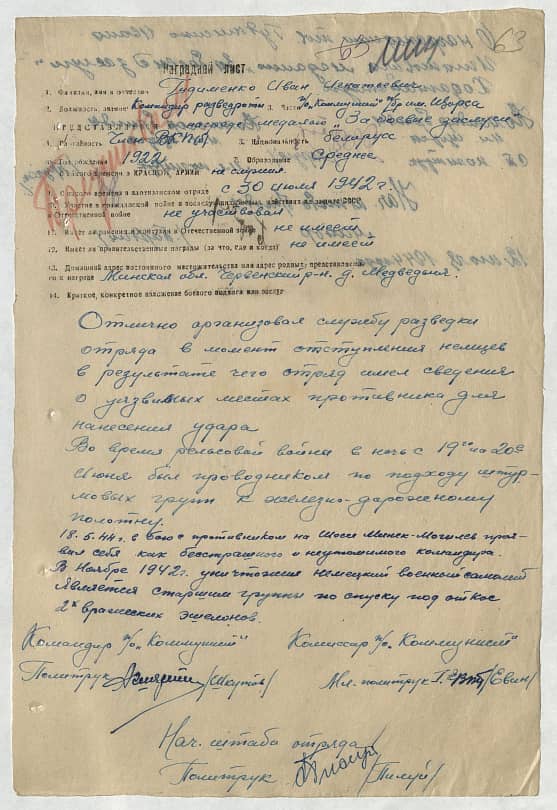 63
63
Наградной лист
1. Фамилия, имя и отчество Гидименко Иван Игнатьевич
2. Должность, звание Командир разведроты 3. Часть п/о „Коммунист" бр им. Щорса
ПРЕДСТАВЛ к награде медалью „За боевые заслуги"
4. Партийность Член ВКП(б) 5. Национальность беларус
6. Год рождения 1922 Образование Среднее
в КРАСНОЙ АРМИИ не служил
в партизанском отряде с 30 июля 1942 г.
Участие в гражданской войне и последующих боевых действиях по защите СССР
и Отечественной войне не участвовал
11. Имеет ли ранения и контузии в Отечественной войне не имеет
12. Имеет ли правительственные награды (за что, где и когда) не имеет
13. Домашний адрес постоянного местожительства или адрес родных представляемого
к награде Минская обл. Червенский р-н. д. Медведня.
14. Краткое, конкретное изложение боевого подвига или заслуг
Отлично организовал службу разведки
отряда в момент отступления немцев
в результате чего отряд имел сведения
о уязвимых местах противника для
нанесения удара
Во время рельсовой войны в ночь с 19го на 20е
Июня был проводником по подходу штур-
мовых групп к железно-дарожному
полотну.
18.5.44 г. в бою с противником на Шоссе Минск-Могилев проя-
вил себя как бесстрашного и неутомимого командира.
В Ноябре 1942 г. уничтожил немецкий военной самолет
Является старшим группы по спуску под откос
2х вражеских эшелонов.
Командир п/о „Коммунист" Комиссар п/о „Коммунист"
Политрук /Шкутов/ Мл. политрук /Евин/
Нач. штаба отряда
Политрук /Пилуй/